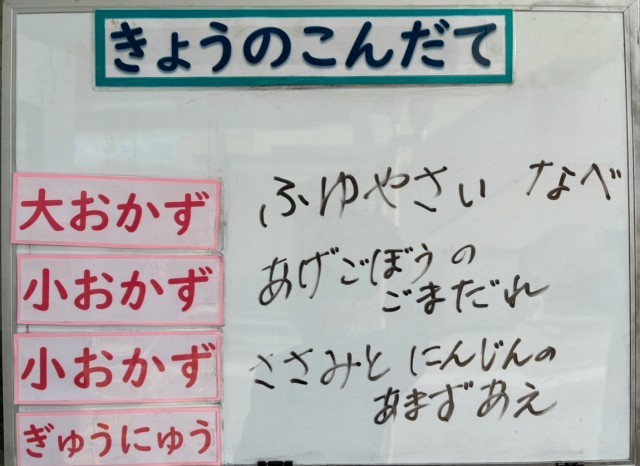 きょうのこんだて
大おかず ふゆやさい なべ
小おかず あげごぼうの
ごまだれ
小おかず ささみと にんじんの
あまずあえ
ぎゅうにゅう